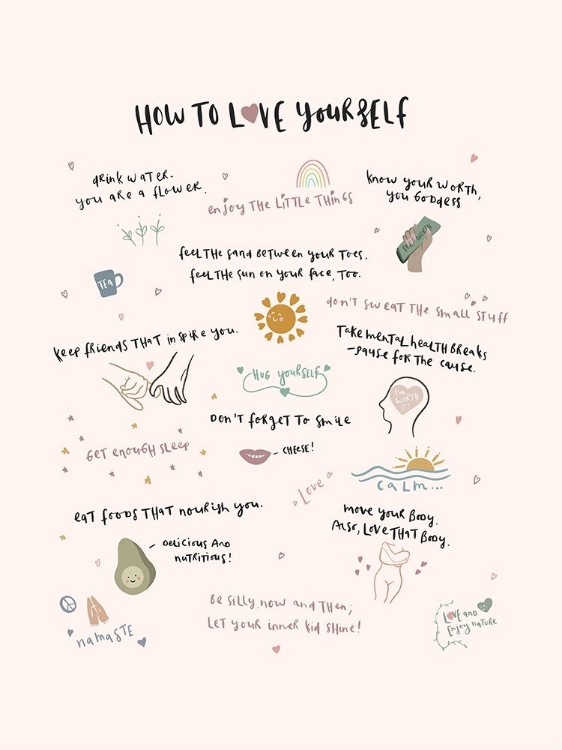 HOW TO LOVE YOURSELF
drink WATER.
you are a flower.
enjoy THE LITTLE THINGS
know your worth,
you GODDESS
feel THE sand BETWEEN your Toes.
feel THE sun on your face, Too.
TEA
don't sweat THE small STUFF
keep friends THAT inspire you.
Take mental health Breaks
-pause for the cause.
HUG yourself
I'm
WORTH
IT!
Don't forget To smile
- CHEESE!
GET enough sleep
Love
CALM...
eat foods THAT nourish you.
- Delicious And
nutritious!
move your Body.
Also, Love THAT Body.
Be silly now and Then;
LET your inner kid shine!
namaste
LOVE and
Enjoy nature